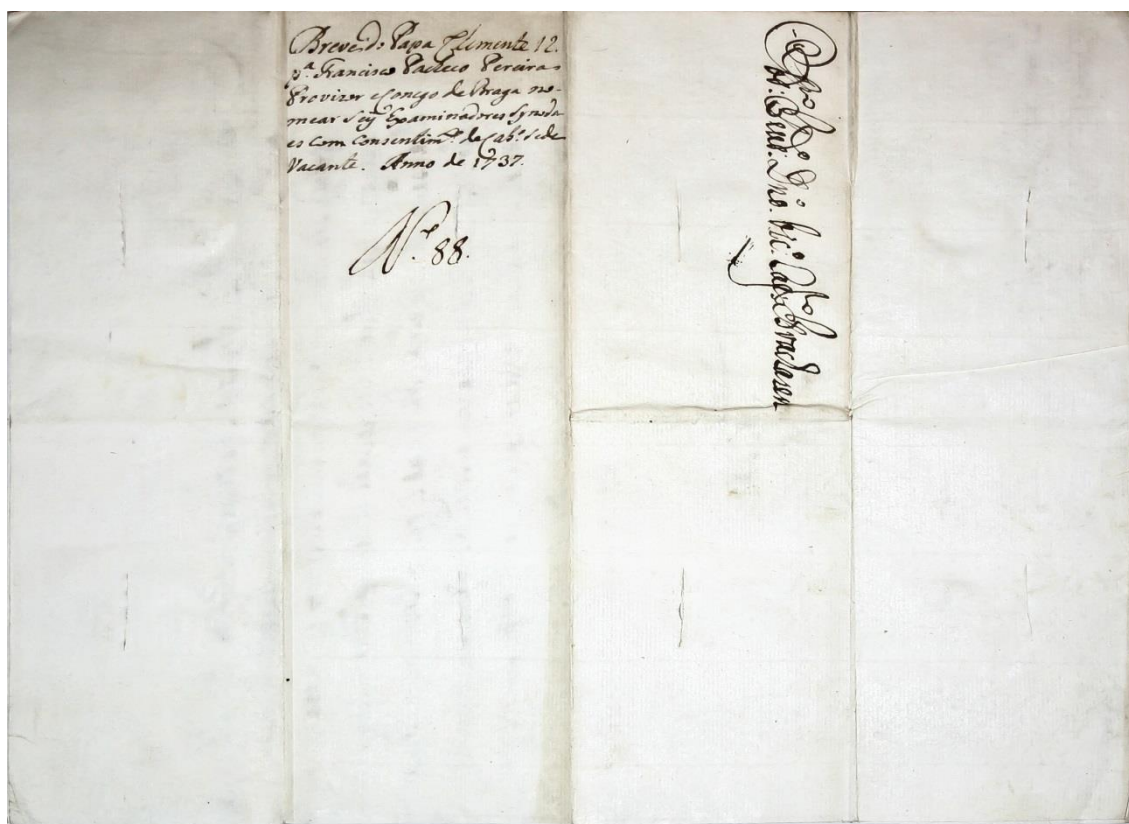 Breve do Papa Clemente 12.
p.ª Francisco Pacheco Pereira
Provizor e Conego de Braga no-
mear seis Examinadores Synoda
es com consentim.to do Cab.o Sede
Vacante. Anno de 1737.
N.º 88.
Dno. Vic.o Cap.lo Bracharen